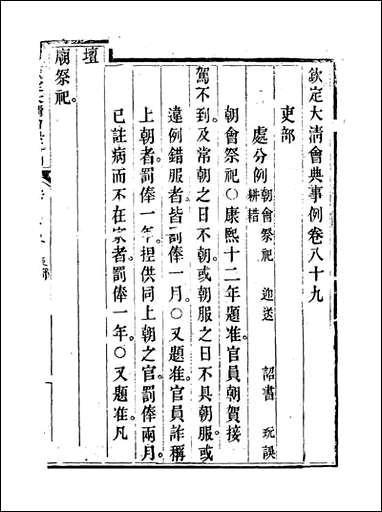 欽定大清會典事例卷八十九
吏部
處分例 朝會祭祀 迎送 詔書 玩誤
耕耤
朝會祭祀○康熙十二年題准官員朝賀接
駕不到及常朝之日不朝或朝服之日不具朝服或
違例錯服者皆罰俸一月○又題准官員詐稱
上朝者罰俸一年捏供同上朝之官罰俸兩月
已註病而不在家者罰俸一年○又題准凡
壇
廟祭祀